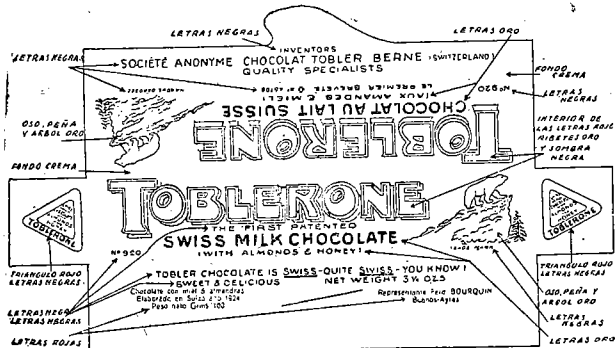 LETRAS NEGRAS
LETRAS ORO
LETRAS NEGRAS
INVENTORS
SOCIÉTÉ ANONYME CHOCOLAT TOBLER BERNE (SWITZERLAND)
QUALITY SPECIALISTS
FONDO
CREMA
LETRAS
NEGRAS
OSO, PEÑA
Y ARBOL ORO
FANDO CREMA
Nº 920
(AUX AMANDES & MIEL)
CHOCOLAT AU LAIT SUISSE
TOBLERONE
INTERIOR DE
LAS LETRAS ROJO
RIBETES ORO
Y SOMBRA
NEGRA
TOBLERONE
THE FIRST PATENTED
SWISS MILK CHOCOLATE
(WITH ALMONDS & HONEY)
TOBLERONE
TOBLERONE
Nº 920
TRIANGULO ROJO
LETRAS NEGRAS
TRIANGULO ROJO
LETRAS NEGRAS
TOBLER CHOCOLATE IS SWISS-QUITE SWISS-YOU KNOW!
SWEET & DELICIOUS NET WEIGHT 3½ OZS
Chocolate con miel & almendras
Elaborado en Suiza año 1924
Peso neto Grms 100
Representante Ferd BOURQUIN
Buenos-Ayres
LETRAS NEGRAS
LETRAS NEGRAS
LETRAS ROJAS
OSO, PEÑA Y
ARBOL ORO
LETRAS
NEGRAS
LETRAS ORO